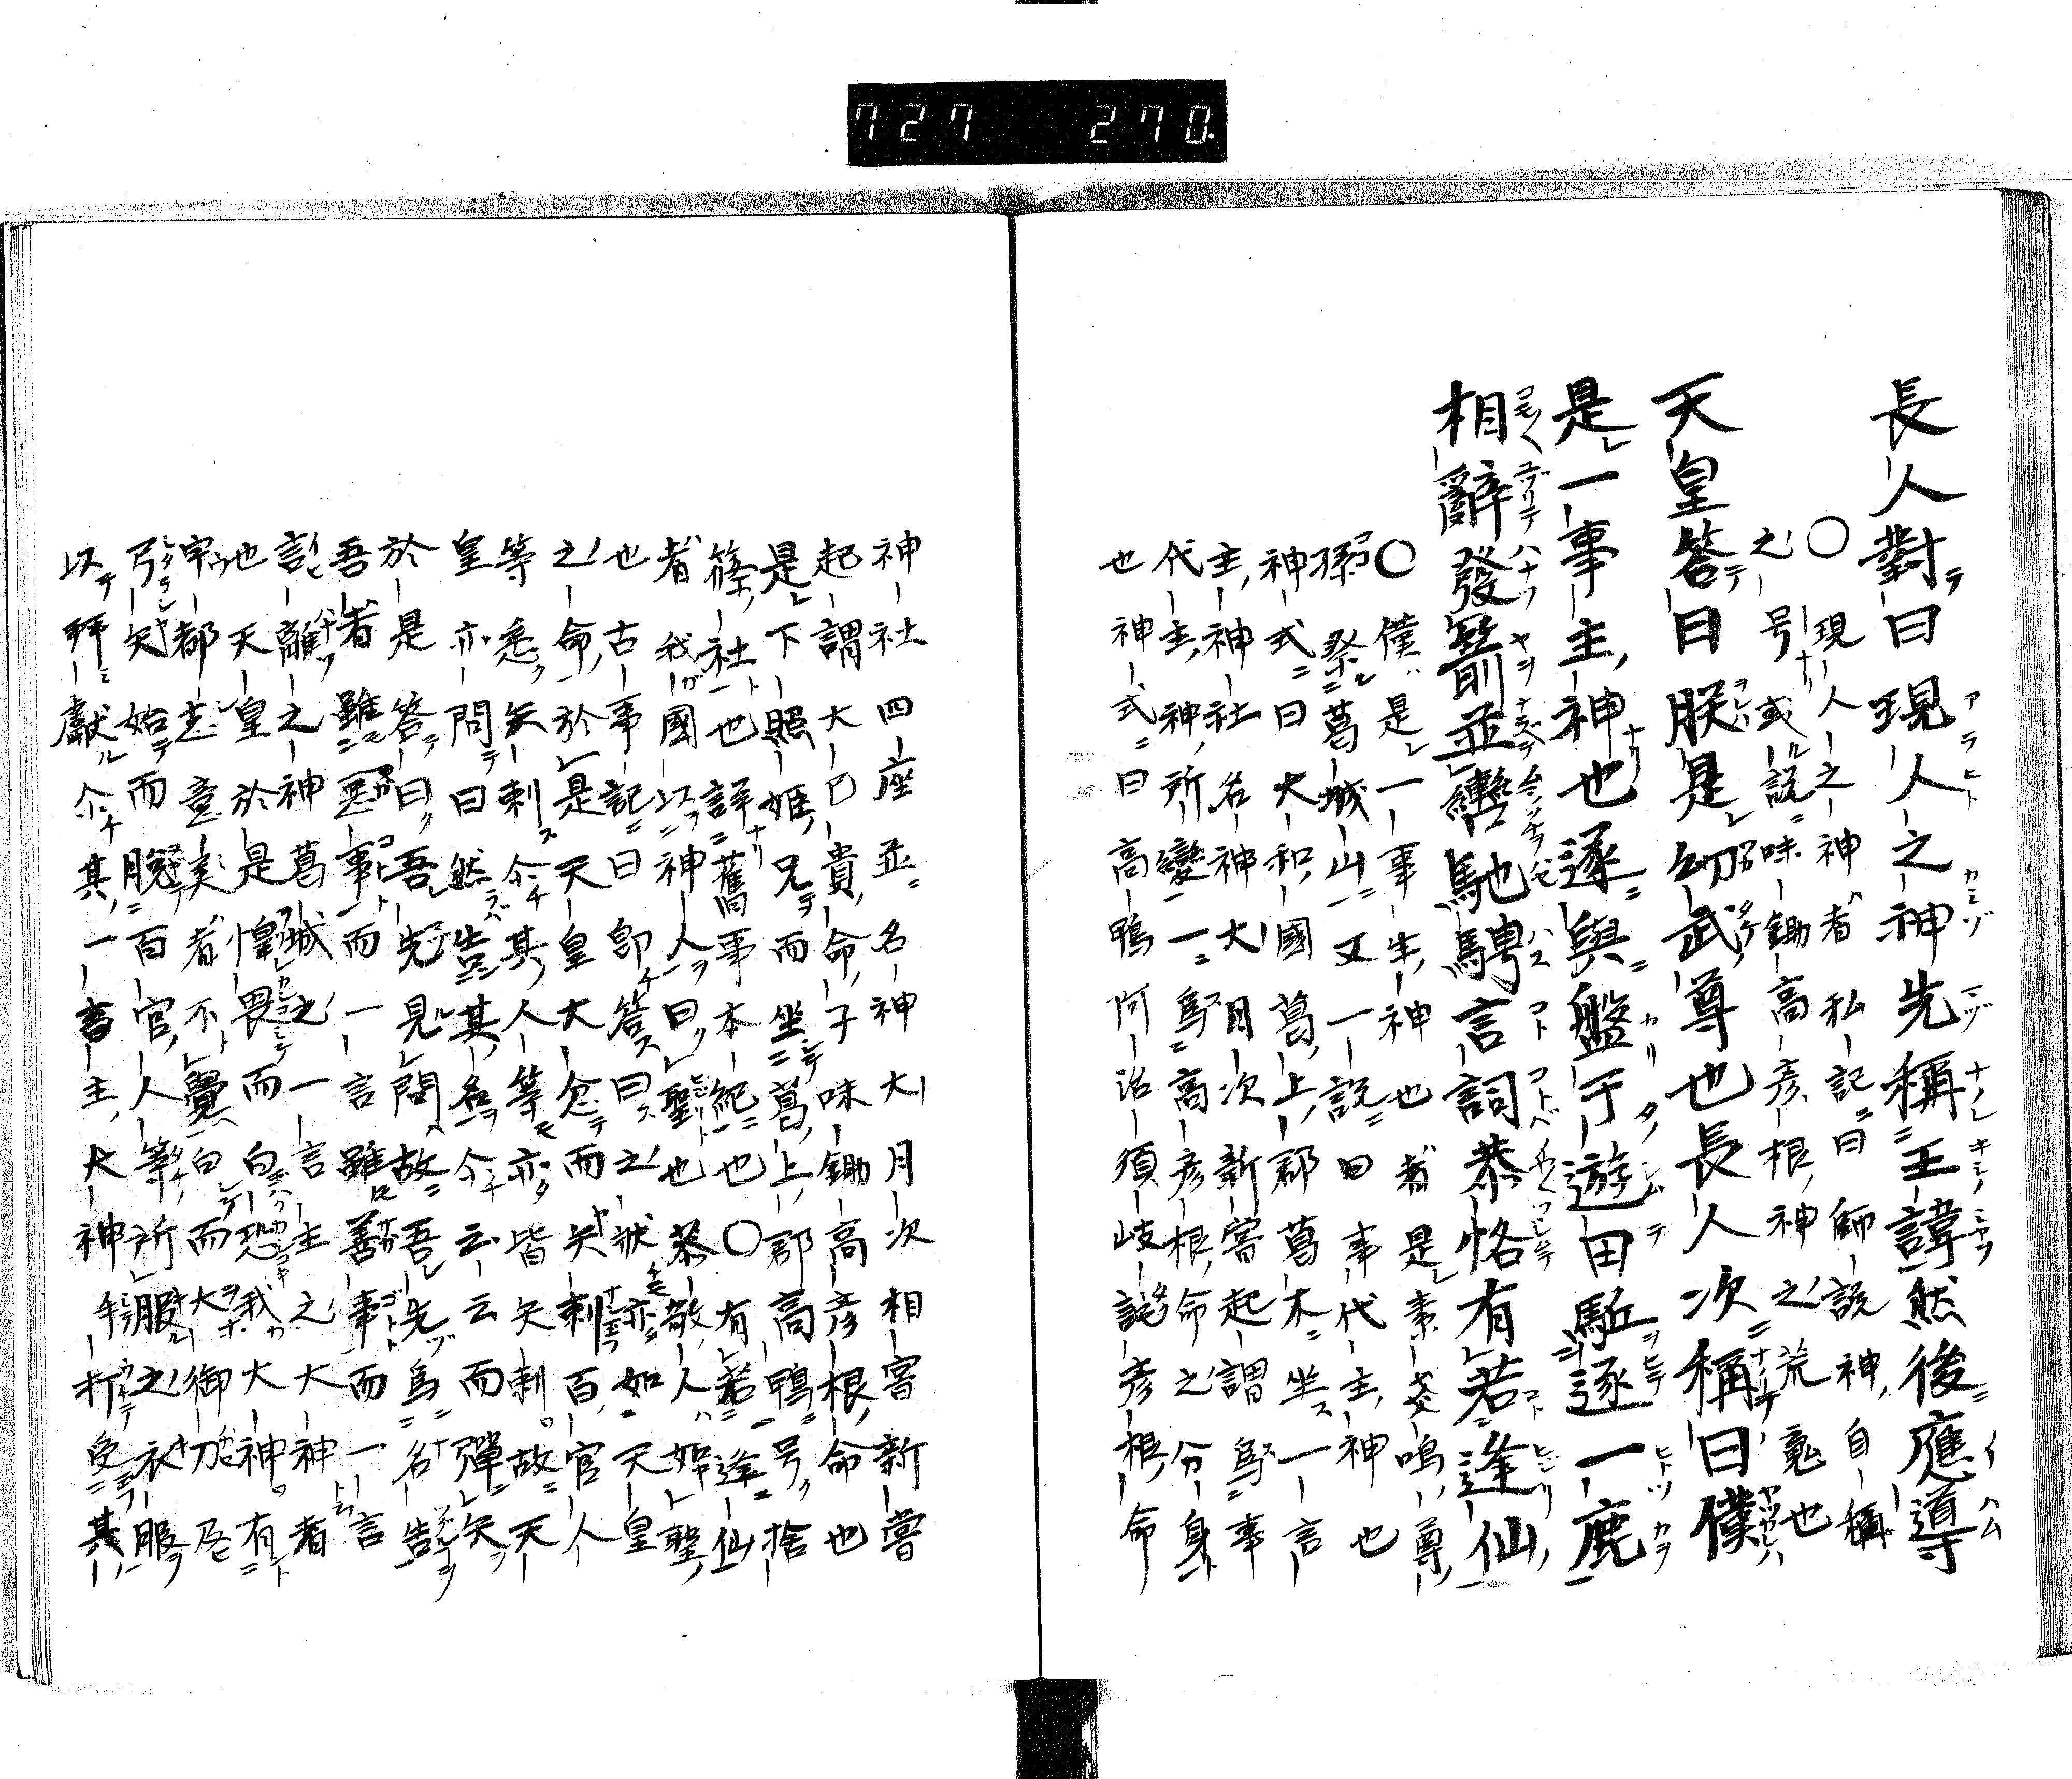 727 270.
長人對曰現人之神先稱王諱然後應導
〇現人之神者私記曰師說神自稱
之号或說味鋤高彥根神之荒竟也
天皇答曰朕是幼武尊也長人次稱曰僕
是一事主神也遂與盤于遊田駈逐一鹿
相辭發箭並轡馳騁言詞恭恪有若逢仙
〇僕是一事主神也者是素戔鳴尊
孫祭葛城山又一說曰事代主神也
神式曰大和國葛上郡葛木坐一言
主神社名神大月次新嘗起謂爲事
代主神所變一爲高彥根命之分身
也神式曰高鴨阿治須岐詫彥根命
神社四座並名神大月次相嘗新嘗
起謂大己貴命子味鋤高彥根命也
是下照姬兄而坐葛上郡高鴨号捨
篠社也詳舊事本紀也〇有若逢仙
者我國以神人曰聖也恭敬人如聖
也古事記曰卽答曰之狀亦如天皇
之命於是天皇大忿而矢刺百官人
等悉矢刺尒其人等亦皆矢刺故天
皇亦問曰然告其名尒云云而彈矢
於是答曰吾先見問故吾先爲名告
吾者雖惡事而一言雖善事而一言
言離之神葛城之一言主之大神者
也天皇於是惶畏而白恐我大神有
宇都志意美者不覺白而大御刀及
弓矢始而脫百官人等所服之衣服
以拜獻尒其一言主大神手打受其